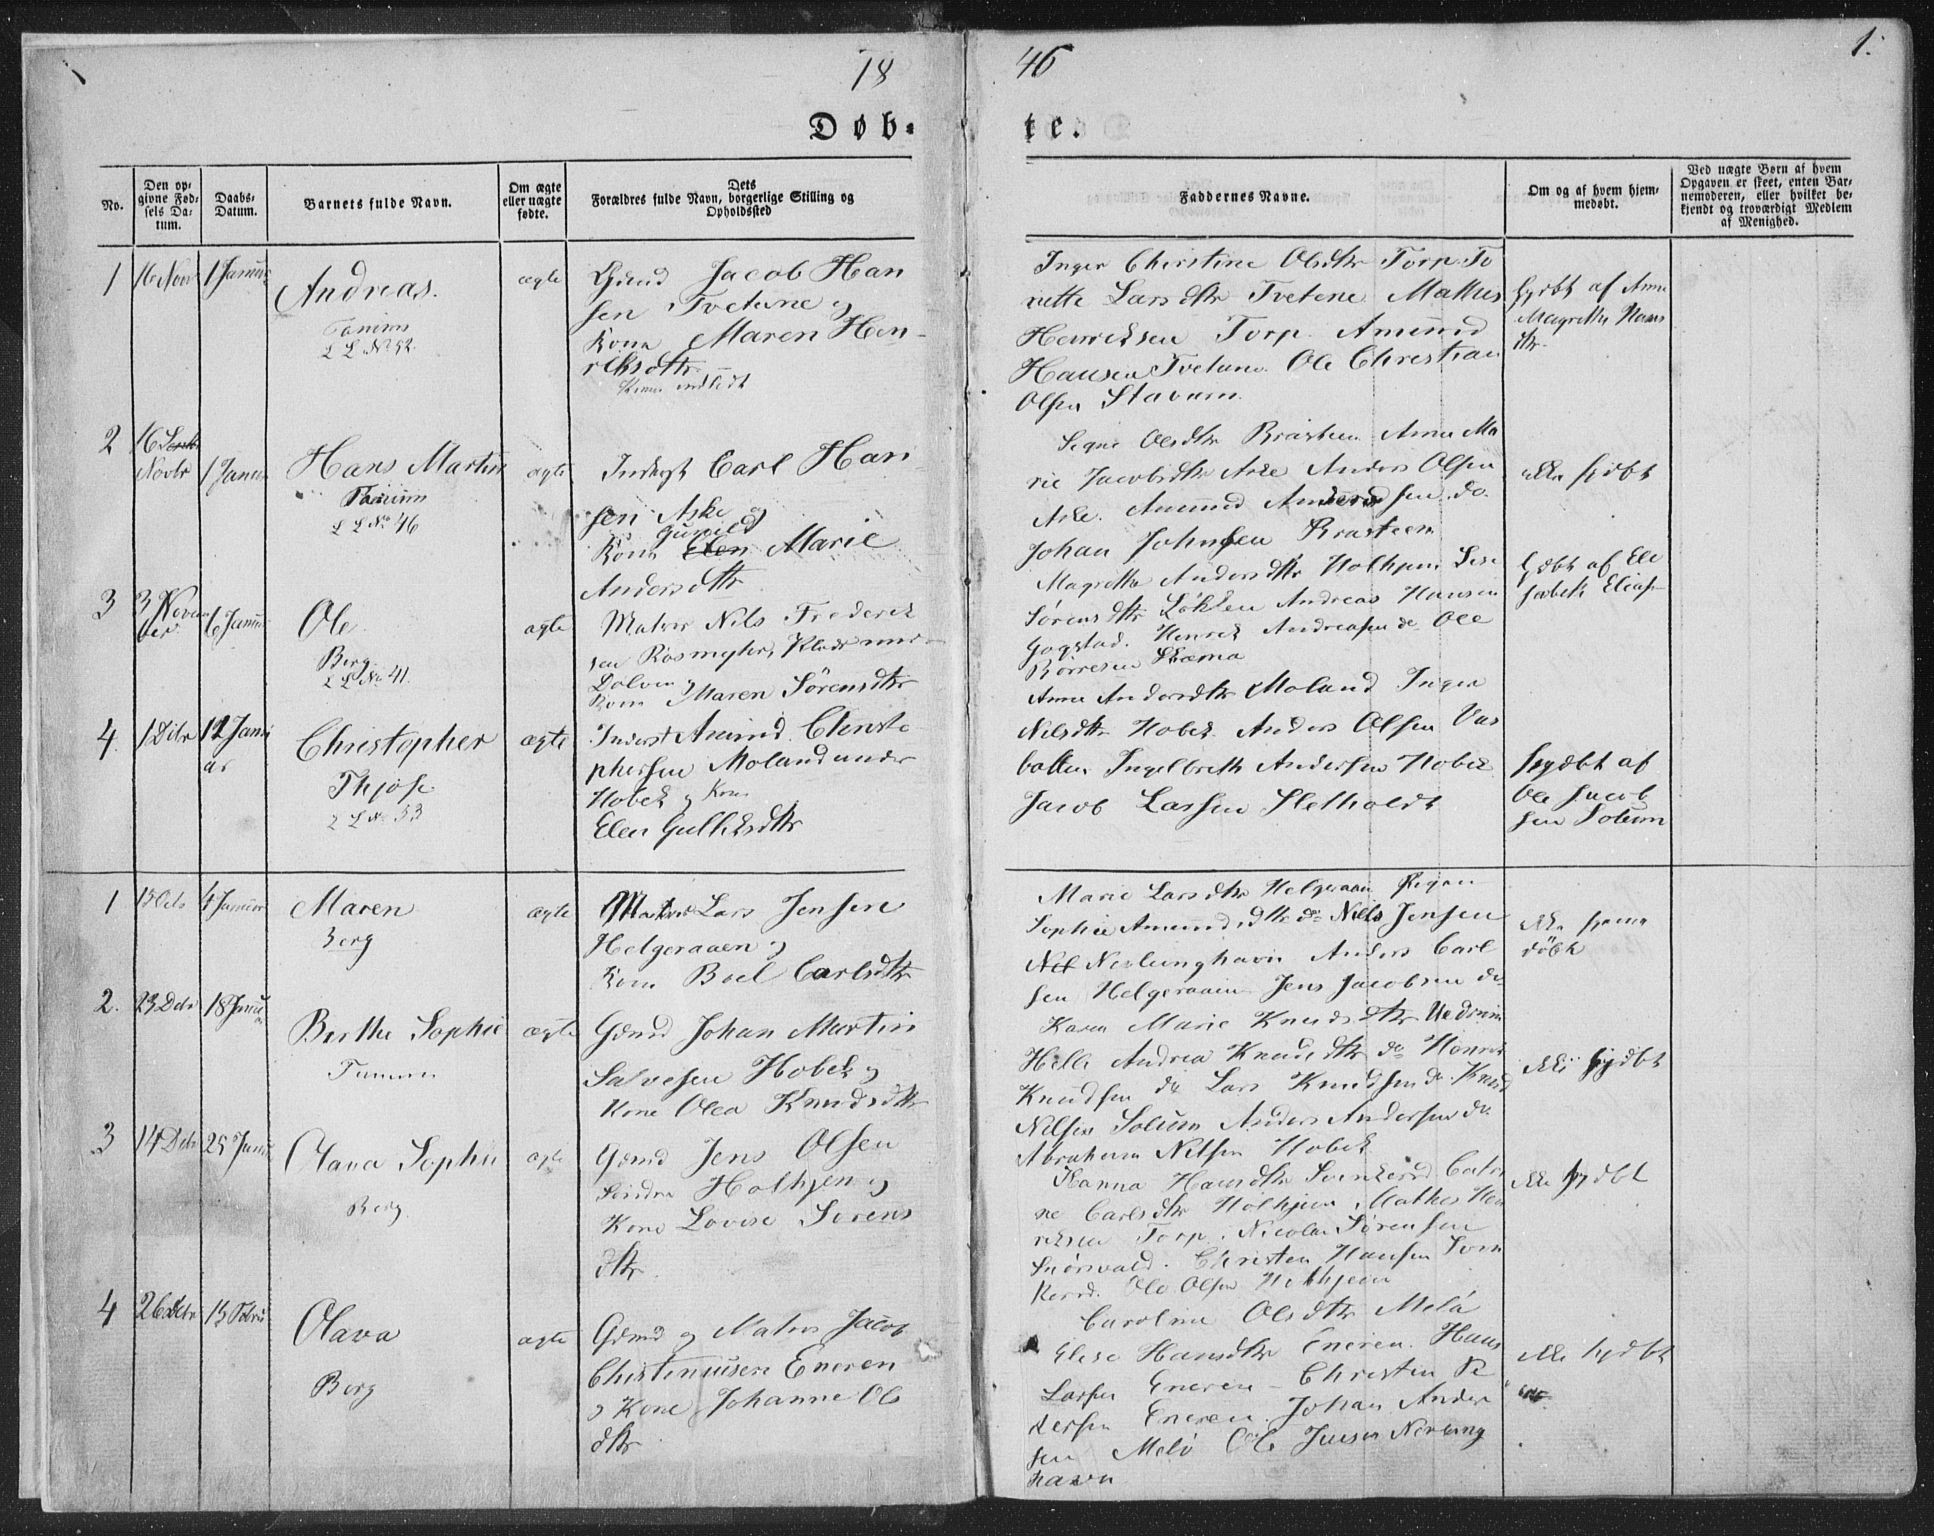 18
46
1.
Døb-
te.
No.
Den op-
givne Fød-
sels Da-
tum.
Daabs-
Datum.
Barnets fulde Navn.
Om ægte
eller uægte
fødte.
Dets
Forældres fulde Navn, borgerlige Stilling og
Opholdssted
Faddernes Navne.
Om og af hvem hjem-
medøbt.
Ved uægte Børn af hvem
Opgaven er skeet, enten Bar-
nemoderen, eller hvilket be-
kjendt og troværdigt Medlem
af Menighed.
1
16 Novr
1 Januar
Andreas.
Tanum
L L No 52.
ægte
Jacob Han
sen Tvetene og
Kone Maren Hen-
richsdtr
Inger Christine Olsdtr Torp.
Larsdtr Tvetene Mathis
Henricksen Torp. Amund
Hansen Tvetene. Ole Christian
Olsen Stavum.
hjdbt af Anne
Magrethe Hans
dtr.
2
16
Novbr
1 Januar
Hans Martin
Tanum
L L No 46
ægte
Inderst Carl Han
sen Aske og
Gunild
Kone Elen Marie
Andersdtr
Signe Olsdtr Brasteen Anne Ma
rie Jacobsdtr Aske Anders Olsen
Aske. Amund Andersen do.
Johan Johnsen Brasteen
ikke hjdbt
3
3 Novem
ber
6 Januar
Ole.
Berg.
L L No 41.
ægte
Matros Nils Frederik
sen
Dolven og
Kone Maren Sörensdtr
Magrethe Andersdtr Holhjem Lise
Sörensdtr Løkken Andreas Hansen
Gogstad. Henrik Andreasen do Ole
Börresen
hjdbt af Eli
sabeth Elias-
4.
1 Dcbr
11 Janu
ar
Christopher
Thjøse.
L L No 53
ægte
Inderst Amund Christo
phersen Moland under
Hobek og Kone
Elen Gulliksdtr
Anne Andersdtr Moland Inger
Nilsdtr Hobek. Anders Olsen Vas
botten Ingelbreth Andersen Hobek
Jacob Larsen Sletholdt
hjdbt af
Ole Jacob
sen Solum
1
4 Januar
Maren
Berg
ægte
Matros Lars Jensen
Helgeraaen og
Kone Boel Carlsdtr
Marie Larsdtr Helgeraaen
Sophie Amundsdtr do Niels Jensen
Nevlunghavn Anders Carl
sen Helgeraaen Jens Jacobsen do
ikke hjemme
döbt
2.
23 Dcbr
18 Janu
ar
Berthe Sophie
Tanum
ægte
Gdmd Johan Martin
Salvesen Hobek og
Kone Olea Knudsdtr
Karen Marie Knudsdtr
Helle Andrea Knudsdtr do Henrik
Knudsen do Lars Knudsen do. Knud
Nilsen Solum Anders Andersen do.
Abraham Nilsen Hobek
ikke hjdbt
3
14 Dcbr
25 Janua
Olava Sophie
Berg.
ægte
Gdmd Jens Olsen
Söndre Holhjem og
Kone Lovise Sörens
dtr.
Hanna Hansdtr
ne Carlsdtr Holhjem Mathis Hen
riksen Torp. Nicolai Sørensen
Christen Hansen
Ole Olsen Holhjem
ikke hjdbt
4
26 Dcbr
15 Febru
Olava
Berg
ægte
Gdmd og Matros Jacob
Christensen Eneren
og Kone Johanne Ols
dtr.
Caroline Olsdtr Melö
Elise Hansdtr Eneren. Hans
Larsen Eneren - Christen Pe
dersen Eneren Johan Ander
sen Melö Ole Jensen Nevlung
havn
ikke hjdbt